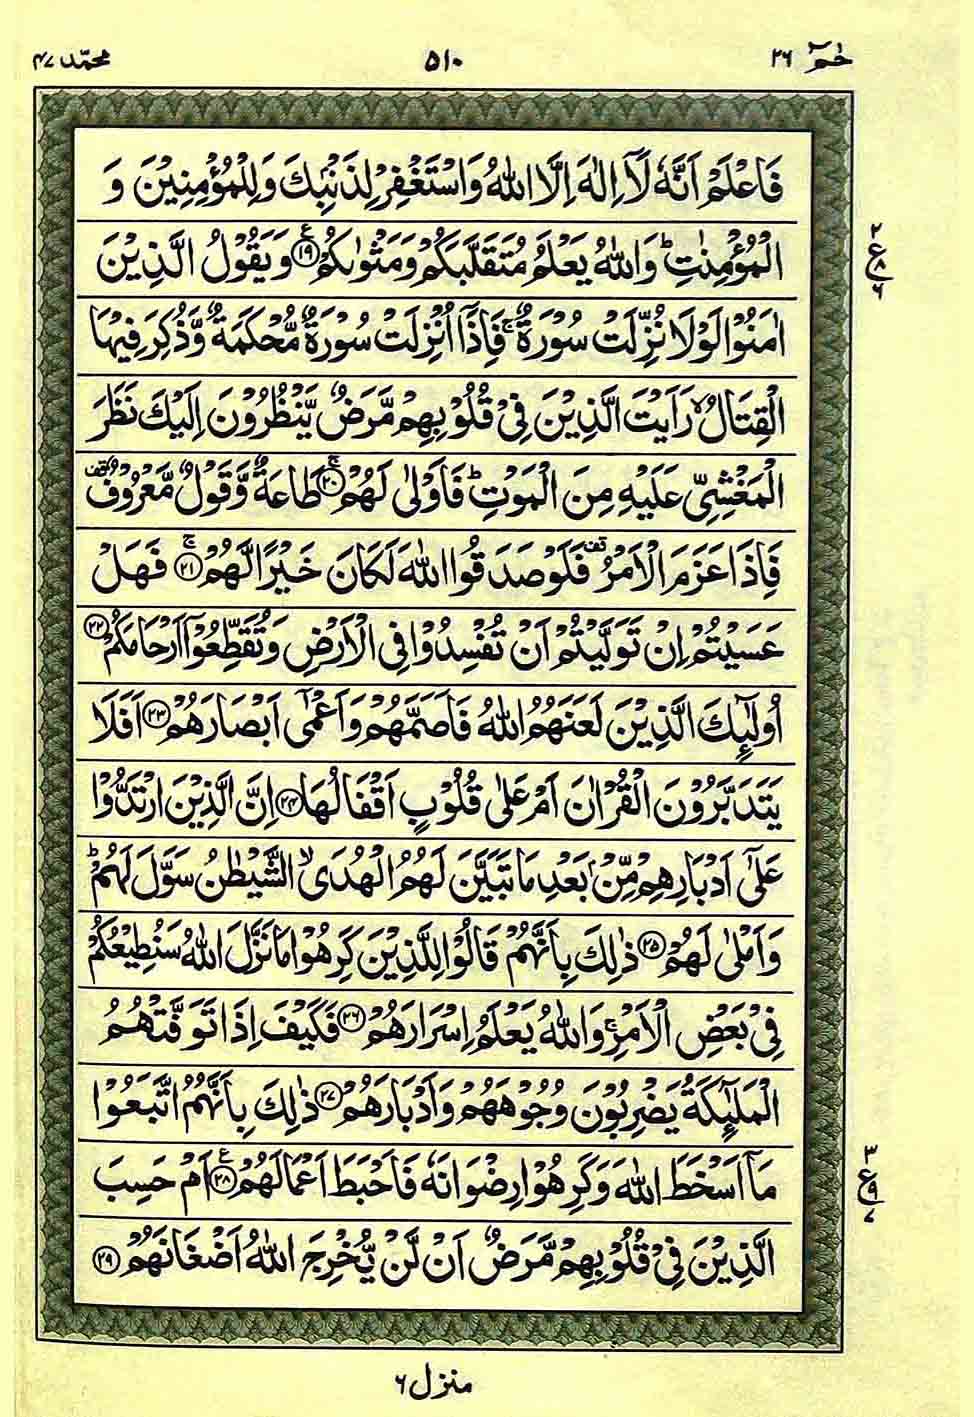 حٰمٓ ٢٦ ٥١٠ محمّد ٤٧
فَاعْلَمْ اَنَّهٗ لَاۤ اِلٰهَ اِلَّا اللّٰهُ وَاسْتَغْفِرْ لِذَنْۢبِكَ وَلِلْمُؤْمِنِيْنَ وَ
الْمُؤْمِنٰتِ ؕ وَاللّٰهُ يَعْلَمُ مُتَقَلَّبَكُمْ وَمَثْوٰىكُمْ ﴿١٩﴾ وَيَقُوْلُ الَّذِيْنَ
٢ ع ٨ ٦
اٰمَنُوْا لَوْلَا نُزِّلَتْ سُوْرَةٌ ۚ فَاِذَاۤ اُنْزِلَتْ سُوْرَةٌ مُّحْكَمَةٌ وَّذُكِرَ فِيْهَا
الْقِتَالُ ۙ رَاَيْتَ الَّذِيْنَ فِيْ قُلُوْبِهِمْ مَّرَضٌ يَّنْظُرُوْنَ اِلَيْكَ نَظَرَ
الْمَغْشِيِّ عَلَيْهِ مِنَ الْمَوْتِ ؕ فَاَوْلٰى لَهُمْ ۚ﴿٢٠﴾ طَاعَةٌ وَّقَوْلٌ مَّعْرُوْفٌ قف
فَاِذَا عَزَمَ الْاَمْرُ قف فَلَوْ صَدَقُوا اللّٰهَ لَكَانَ خَيْرًا لَّهُمْ ۚ﴿٢١﴾ فَهَلْ
عَسَيْتُمْ اِنْ تَوَلَّيْتُمْ اَنْ تُفْسِدُوْا فِي الْاَرْضِ وَتُقَطِّعُوْۤا اَرْحَامَكُمْ ﴿٢٢﴾
اُولٰٓئِكَ الَّذِيْنَ لَعَنَهُمُ اللّٰهُ فَاَصَمَّهُمْ وَاَعْمٰۤى اَبْصَارَهُمْ ﴿٢٣﴾ اَفَلَا
يَتَدَبَّرُوْنَ الْقُرْاٰنَ اَمْ عَلٰى قُلُوْبٍ اَقْفَالُهَا ﴿٢٤﴾ اِنَّ الَّذِيْنَ ارْتَدُّوْا
عَلٰۤى اَدْبَارِهِمْ مِّنْۢ بَعْدِ مَا تَبَيَّنَ لَهُمُ الْهُدَى ۙ الشَّيْطٰنُ سَوَّلَ لَهُمْ ؕ
وَاَمْلٰى لَهُمْ ﴿٢٥﴾ ذٰلِكَ بِاَنَّهُمْ قَالُوْا لِلَّذِيْنَ كَرِهُوْا مَا نَزَّلَ اللّٰهُ سَنُطِيْعُكُمْ
فِيْ بَعْضِ الْاَمْرِ ۚ وَاللّٰهُ يَعْلَمُ اِسْرَارَهُمْ ﴿٢٦﴾ فَكَيْفَ اِذَا تَوَفَّتْهُمُ
الْمَلٰٓئِكَةُ يَضْرِبُوْنَ وُجُوْهَهُمْ وَاَدْبَارَهُمْ ﴿٢٧﴾ ذٰلِكَ بِاَنَّهُمُ اتَّبَعُوْا
مَاۤ اَسْخَطَ اللّٰهَ وَكَرِهُوْا رِضْوَانَهٗ فَاَحْبَطَ اَعْمَالَهُمْ ﴿٢٨﴾ اَمْ حَسِبَ
٣ ع ٩ ٧
الَّذِيْنَ فِيْ قُلُوْبِهِمْ مَّرَضٌ اَنْ لَّنْ يُّخْرِجَ اللّٰهُ اَضْغَانَهُمْ ﴿٢٩﴾
منزل ٦